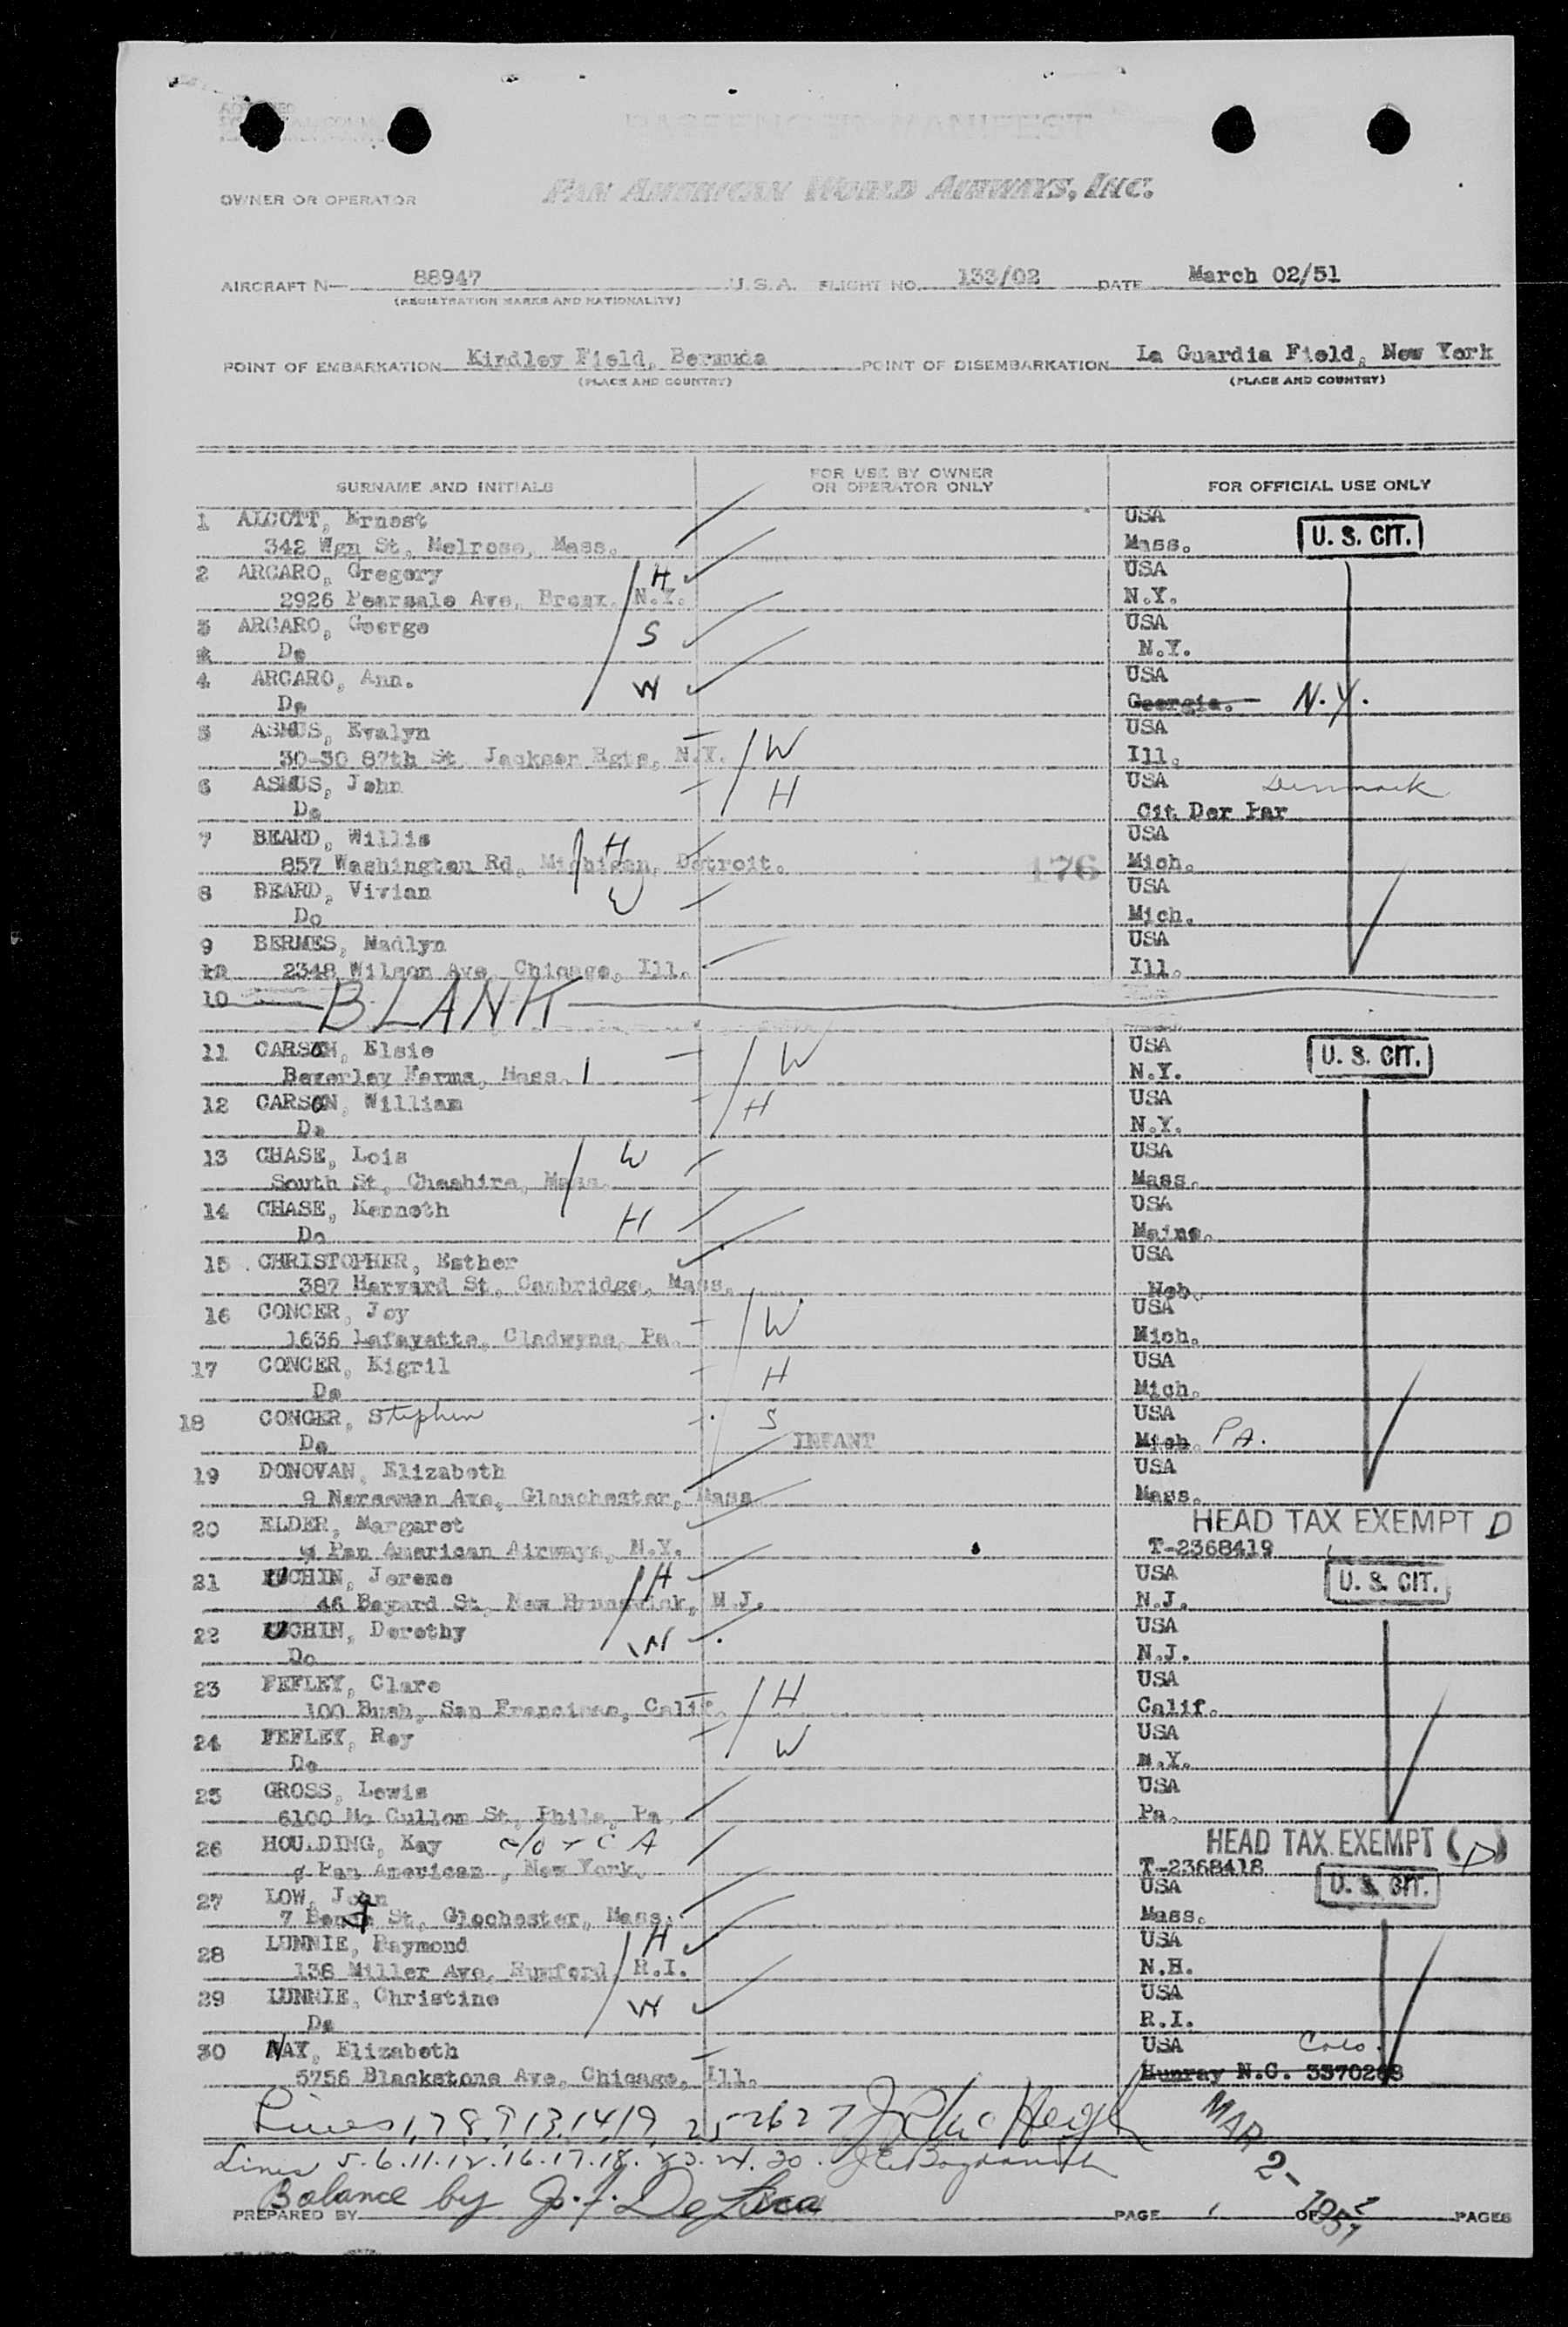 PASSENGER MANIFEST
OWNER OR OPERATOR PAN AMERICAN WORLD AIRWAYS, INC.
AIRCRAFT N— 88947 U.S.A. FLIGHT NO. 133/02 DATE March 02/51
(REGISTRATION MARKS AND NATIONALITY)
POINT OF EMBARKATION Kindley Field, Bermuda POINT OF DISEMBARKATION La Guardia Field, New York
(PLACE AND COUNTRY) (PLACE AND COUNTRY)
SURNAME AND INITIALS FOR USE BY OWNER OR OPERATOR ONLY FOR OFFICIAL USE ONLY
1 ALCOTT, Ernest USA
342 Wgn St, Melrose, Mass. Mass. U. S. CIT.
2 ARCARO, Gregory H USA
2926 Pearsale Ave, Bronx, N.Y. N.Y.
3 ARCARO, George S USA
Do N.Y.
4 ARCARO, Ann. W USA
Do Georgia. N.Y.
5 ASMUS, Evalyn W USA
30-30 87th St, Jackson Hgts, N.Y. Ill.
6 ASMUS, John H USA Denmark
Do Cit Der Par
7 BEARD, Willis H USA
857 Washington Rd, Michigan, Detroit. 176 Mich.
8 BEARD, Vivian W USA
Do Mich.
9 BERMES, Madlyn USA
2348 Wilson Ave, Chicago, Ill. Ill.
10 BLANK
11 CARSON, Elsie W USA U. S. CIT.
Beverley Farms, Mass. N.Y.
12 CARSON, William H USA
Do N.Y.
13 CHASE, Lois W USA
South St, Cheshire, Mass. Mass.
14 CHASE, Kenneth H USA
Do Maine.
15 CHRISTOPHER, Esther USA
387 Harvard St, Cambridge, Mass. Neb.
16 CONGER, Joy W USA
1636 Lafayette, Gladwyne, Pa. Mich.
17 CONGER, Kigril H USA
Do Mich.
18 CONGER, Stephen S USA
Do INFANT Mich PA.
19 DONOVAN, Elizabeth USA
9 Ave, Mass Mass.
20 ELDER, Margaret HEAD TAX EXEMPT D
Pan American Airways, N.Y. T-2368419
21 UCHIN, Jerome H USA U. S. CIT.
46 Bayard St, New Brunswick, N.J. N.J.
22 UCHIN, Dorothy W USA
Do N.J.
23 FEFLEY, Clare H USA
100 Bush, San Francisco, Calif. Calif.
24 FEFLEY, Roy W USA
Do N.Y.
25 GROSS, Lewis USA
6100 Mc Cullom St, Phila, Pa Pa.
26 HOULDING, Kay c/o T C A HEAD TAX EXEMPT (D)
Pan American, New York. T-2368418
27 LOW, USA U. S. CIT.
7 St, Glochester, Mass. Mass.
28 LUNNIE, Raymond H USA
138 Miller Ave, Rumford, R.I. N.H.
29 LUNNIE, Christine W USA
Do R.I.
30 NAY, Elizabeth USA Colo.
5756 Blackstone Ave, Chicago, Ill.
Lines 1, 7 8, 9 13, 14, 19, 25 26 27
Lines 5. 6. 11. 12. 16. 17. 18. 23. 24. 30.
Balance by J. J. DeLuca
MAR 2- 1951
PREPARED BY PAGE 1 OF 2 PAGES